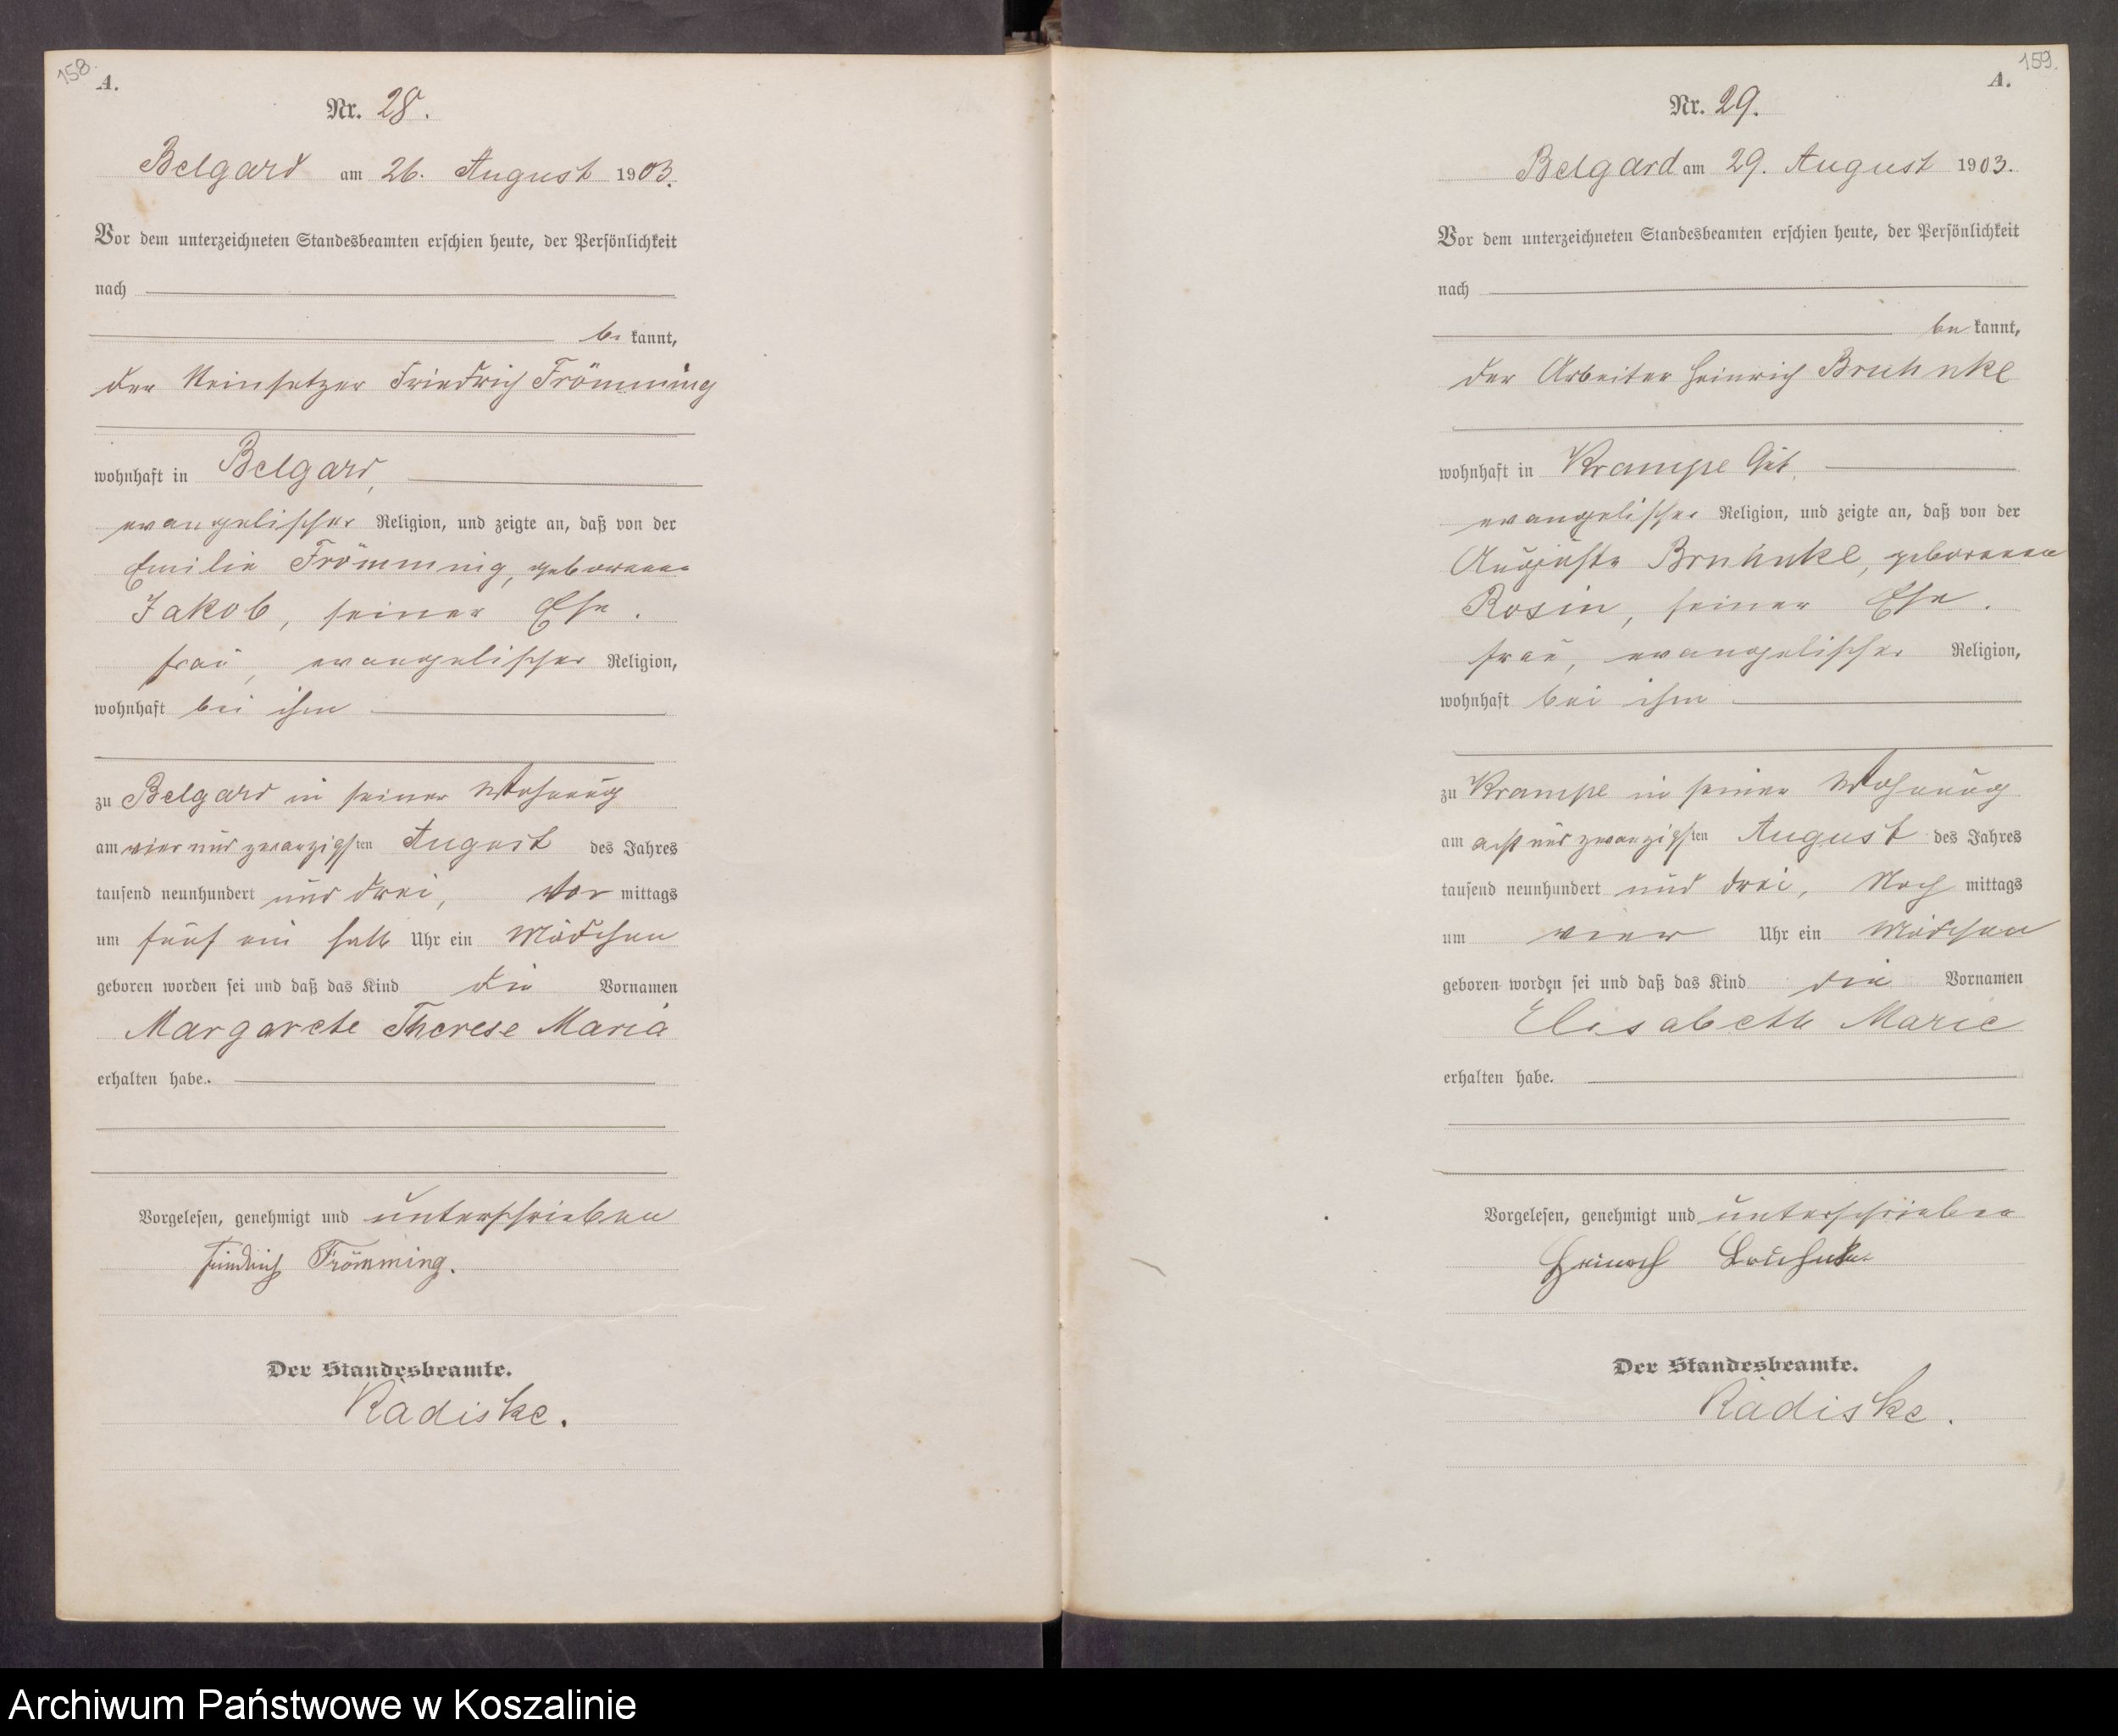 158.
A.
Nr. 28.
Belgard am 26. August 1903.
Vor dem unterzeichneten Standesbeamten erschien heute, der Persönlichkeit
nach
be kannt,
der Friedrich Frömming
wohnhaft in Belgard,
evangelischer Religion, und zeigte an, daß von der
Emilie Frömming, geborenen
Jakob, seiner Ehe-
frau, evangelischer Religion,
wohnhaft bei ihm
zu Belgard in seiner Wohnung
am vier und zwanzigsten August des Jahres
tausend neunhundert und drei, Vor mittags
um fünf ein halb Uhr ein Mädchen
geboren worden sei und daß das Kind die Vornamen
Margarete Therese Maria
erhalten habe.
Vorgelesen, genehmigt und unterschrieben
Friedrich Frömming.
Der Standesbeamte.
Radiske.
159.
A.
Nr. 29.
Belgard am 29. August 1903.
Vor dem unterzeichneten Standesbeamten erschien heute, der Persönlichkeit
nach
be kannt,
der Arbeiter Heinrich Bruhnke
wohnhaft in Krampe Gut,
evangelischer Religion, und zeigte an, daß von der
Auguste Bruhnke, geborenen
Rosin, seiner Ehe-
frau, evangelischer Religion,
wohnhaft bei ihm
zu Krampe in seiner Wohnung
am acht und zwanzigsten August des Jahres
tausend neunhundert und drei, Nach mittags
um vier Uhr ein Mädchen
geboren worden sei und daß das Kind die Vornamen
Elisabeth Marie
erhalten habe.
Vorgelesen, genehmigt und unterschrieben
Heinrich Bruhnke
Der Standesbeamte.
Radiske.
Archiwum Państwowe w Koszalinie